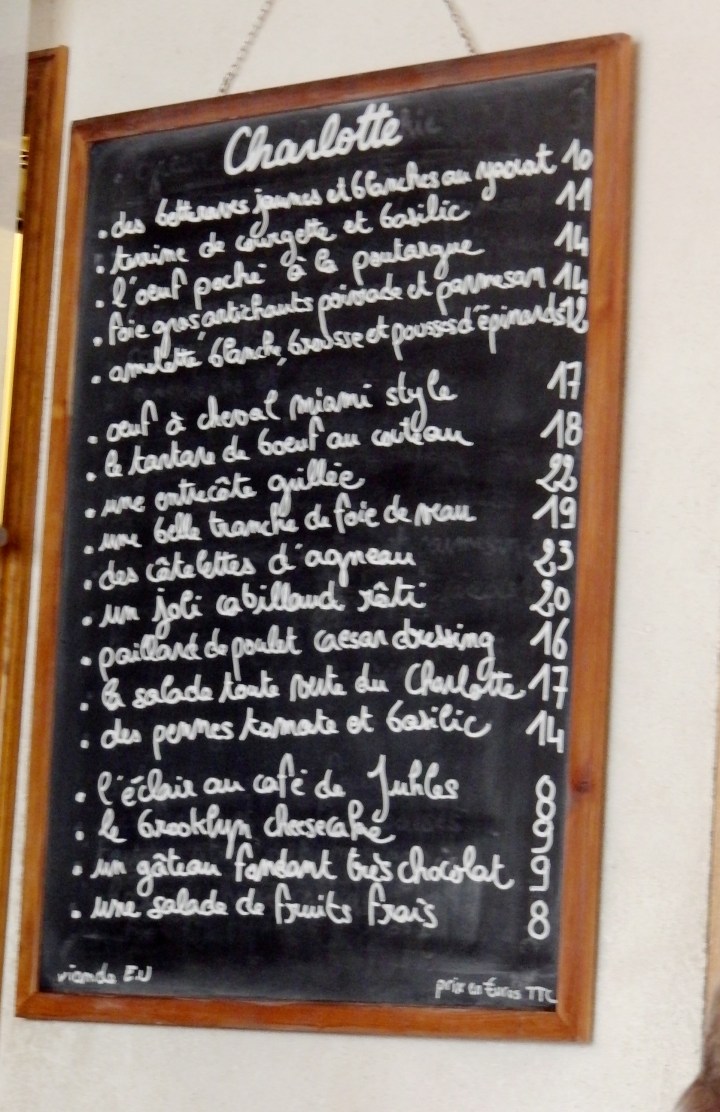 Charlotte
. des betteraves jaunes et blanches au yaourt 10
. terrine de courgette et basilic 11
. l'oeuf poché à la poutargue 14
. foie gras artichauts poivrade et parmesan 14
. omelette "blanche, brousse et pousses d'épinards 12
. oeuf à cheval miami style 17
. le tartare de boeuf au couteau 18
. une entrecôte grillée 22
. une belle tranche de foie de veau 19
. des côtelettes d'agneau 23
. un joli cabillaud rôti 20
. paillard de poulet caesar dressing 16
. la salade toute verte du Charlotte 17
. des pennes tomate et basilic 14
. l'éclair au café de Juhles 8
. le Brooklyn cheesecake 9
. un gâteau fondant très chocolat 9
. une salade de fruits frais 8
viande E.U
prix en Euros TTC